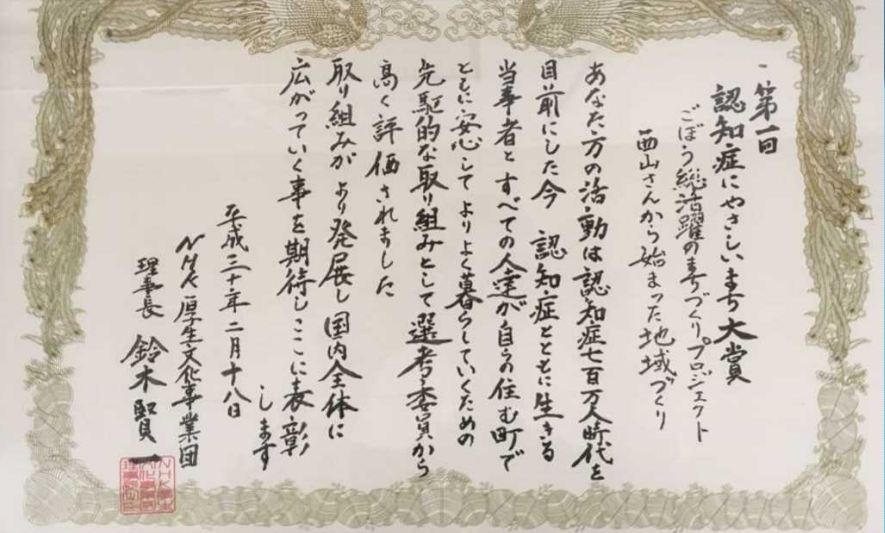 第一回
認知症にやさしいまち大賞
ごぼう総活躍のまちづくりプロジェクト
西山さんから始まった地域づくり
あなた方の活動は認知症七百万人時代を
目前にした今 認知症とともに生きる
当事者とすべての人達が自らの住む町で
ともに安心してよりよく暮らしていくための
先駆的な取り組みとして選考委員から
高く評価されました
取り組みがより発展し国内全体に
広がっていく事を期待しここに表彰
します
平成三十年二月十八日
NHK厚生文化事業団
理事長 鈴木賢一